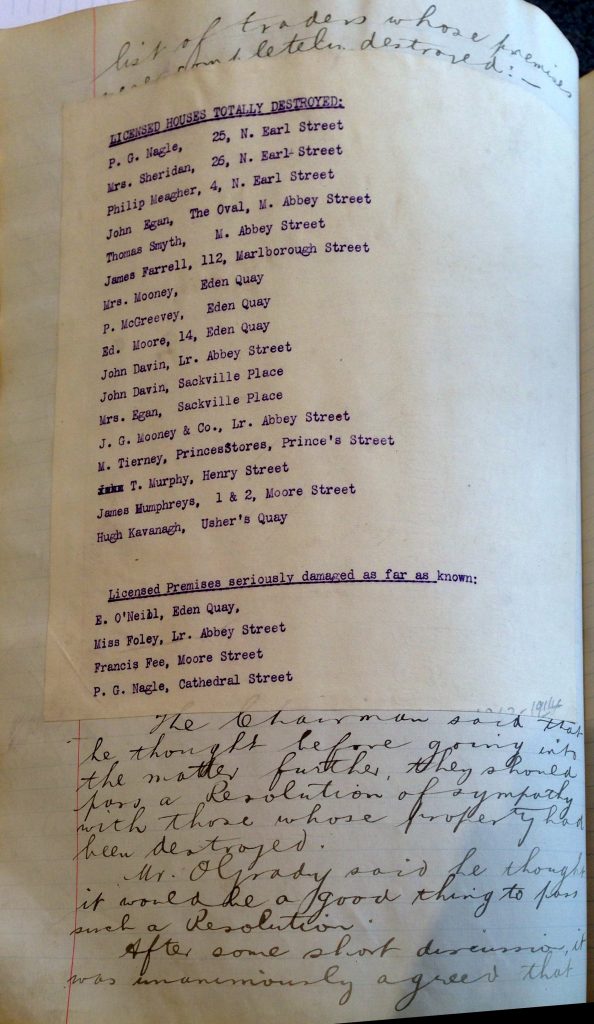 list of traders whose premises
were completely destroyed:-
LICENSED HOUSES TOTALLY DESTROYED:
P. G. Nagle, 25, N. Earl Street
Mrs. Sheridan, 26, N. Earl Street
Philip Meagher, 4, N. Earl Street
John Egan, The Oval, M. Abbey Street
Thomas Smyth, M. Abbey Street
James Farrell, 112, Marlborough Street
Mrs. Mooney, Eden Quay
P. McGreevey, Eden Quay
Ed. Moore, 14, Eden Quay
John Davin, Lr. Abbey Street
John Davin, Sackville Place
Mrs. Egan, Sackville Place
J. G. Mooney & Co., Lr. Abbey Street
M. Tierney, PrincesStores, Prince's Street
T. Murphy, Henry Street
James Humphreys, 1 & 2, Moore Street
Hugh Kavanagh, Usher's Quay
Licensed Premises seriously damaged as far as known:
E. O'Neill, Eden Quay,
Miss Foley, Lr. Abbey Street
Francis Fee, Moore Street
P. G. Nagle, Cathedral Street
1914
The Chairman said that
he thought before going into
the matter further, they should
pass a Resolution of sympathy
with those whose property had
been destroyed.
Mr. O'Grady said he thought
it would be a good thing to pass
such a Resolution.
After some short discussion, it
was unanimously agreed that